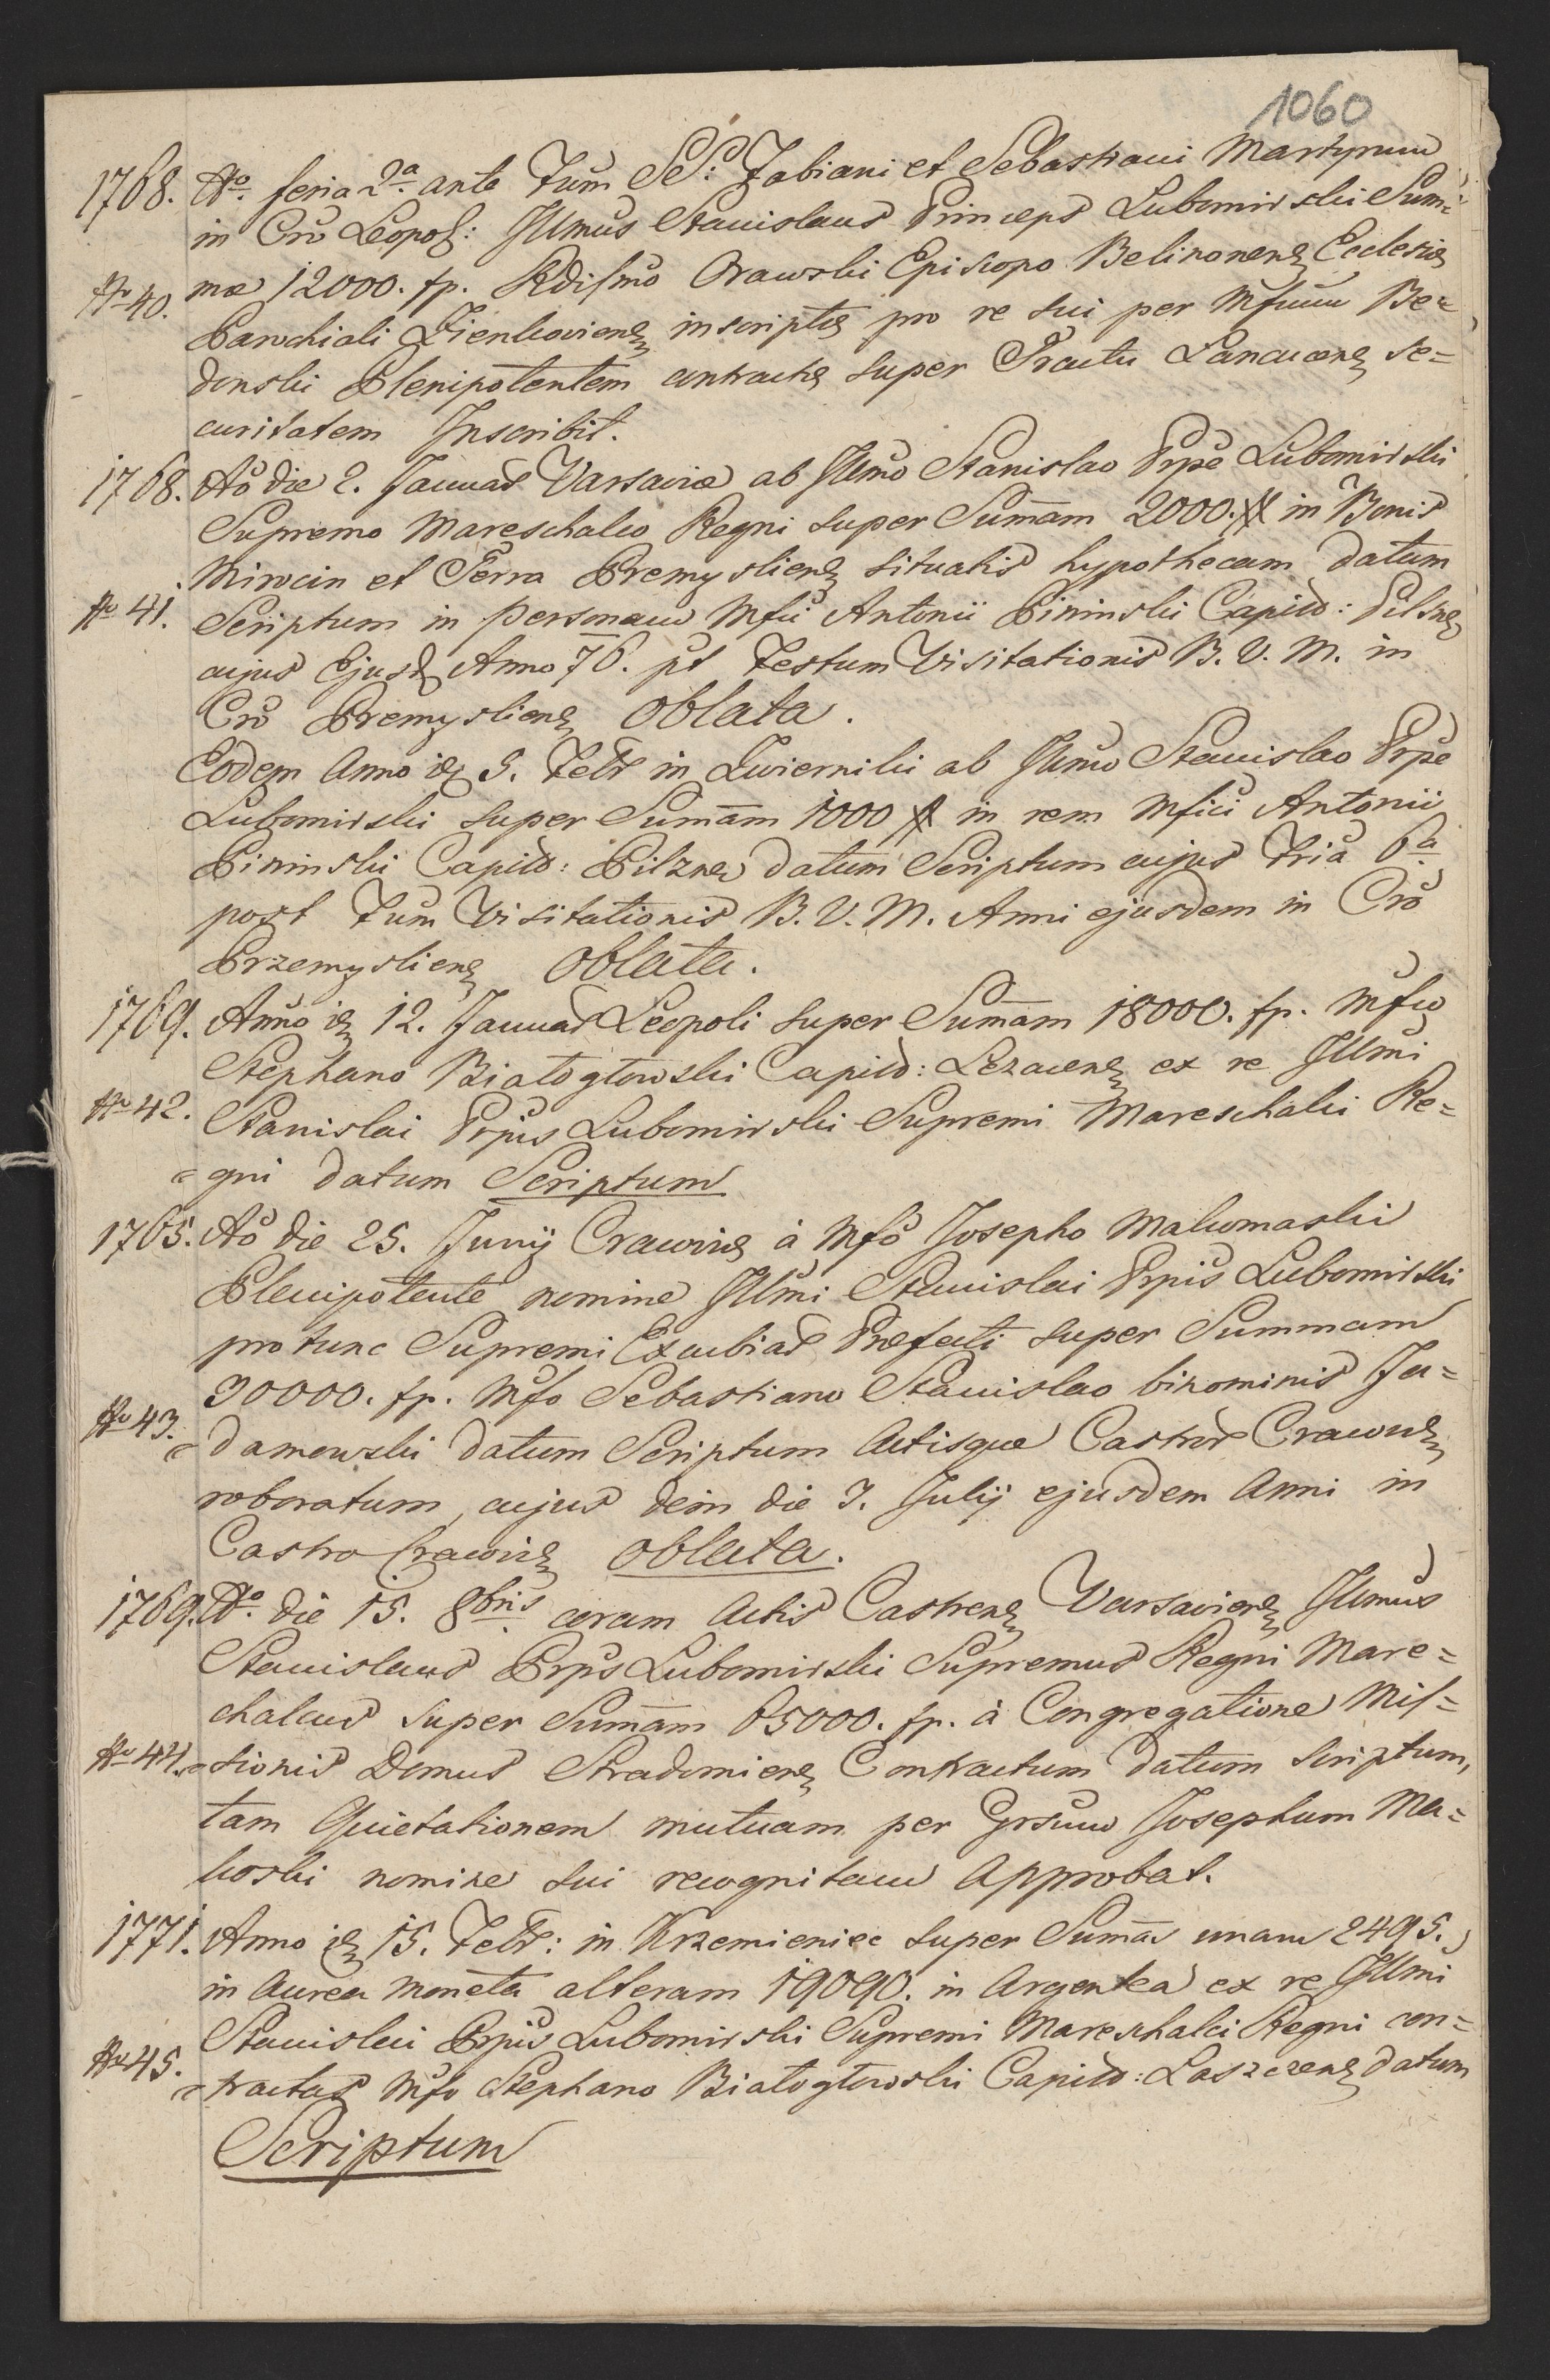 1060
1768. Ao. feria 2a. ante Fum SS: Fabiani et Sebastiani Martyrum
in Cro Leopol: Illmus Stanislaus Princeps Lubomirski Sum=
No 40. mæ 12000. fp. Rdissmo Orawski Episcopo Belinonens Ecclesiæ
Parochiali Zienkoviens inscriptæ pro re sui per Mfcum Be=
donski Plenipotentem contractæ super Tractu Lancucens se=
curitatem Inscribit.
1768. Ao die 2. Januar Varsaviæ ab Illmo Stanislao Prpe Lubomirski
Supremo Mareschalco Regni super Sumam 2000. # in Bonis
Mirocin et Terra Premysliens situatis hypothecam datum
No 41. Scriptum in personam Mfci Antonii Pininski Capits: Pilsn
cujus Ejusd Anno 76. pt Festum Visitationis B. V. M. in
Cro Premysliens Oblata.
Eodem Anno id 5. Febr in Zwierniki ab Illmo Stanislao Prpe
Lubomirski super Sumam 1000 # in rem Mfici Antonii
Pininski Capits: Pilzn datum Scriptum cujus Fria 6a
post Fum Visitationis B. V. M. Anni ejusdem in Cro
Przemysliens Oblata.
1769. Anno id 12. Januar Leopoli super Sumam 18000. fp. Mfco
Stephano Białogłowski Capits: Lezacens ex re Illmi
No 42. Stanislai Prpis Lubomirski Supremi Mareschalci Re=
=gni datum Scriptum
1765. Ao die 25. Junij Cracoviæ à Mfco Josepho Makomaski
Plenipotente nomine Illmi Stanislai Prpis Lubomirski
pro tunc Supremi Excubiar Præfecti super Summam
30000. fp. Mfco Sebastiano Stanislao binominis Ja=
No 43. =damowski datum Scriptum Actisque Castren Cracovien
roboratum, cujus dein die 3. Julij ejusdem Anni in
Castro Cracoviens Oblata.
1769. Ao. die 15. 8bris coram Actis Castrens Varsaviens Illmus
Stanislaus Prps Lubomirski Supremus Regni Mare=
chalcus super Sumam 65000. fp. à Congregatione Mis=
No 44. =sionis Domus Stradomiens Contractum datum scriptum,
tam Quietationem mutuam per Grsum Josephum Ma=
koski nomine sui recognitam Approbat.
1771. Anno id 15. Febr: in Krzemieniec super Suma unam 2495.
in Aurea moneta alteram 19090. in Argentea ex re Illmi
Stanislai Prpis Lubomirski Supremi Mareschalci Regni con=
No 45. =tractas Mfco Stephano Białogłowski Capits: Laszczens datum
Scriptum